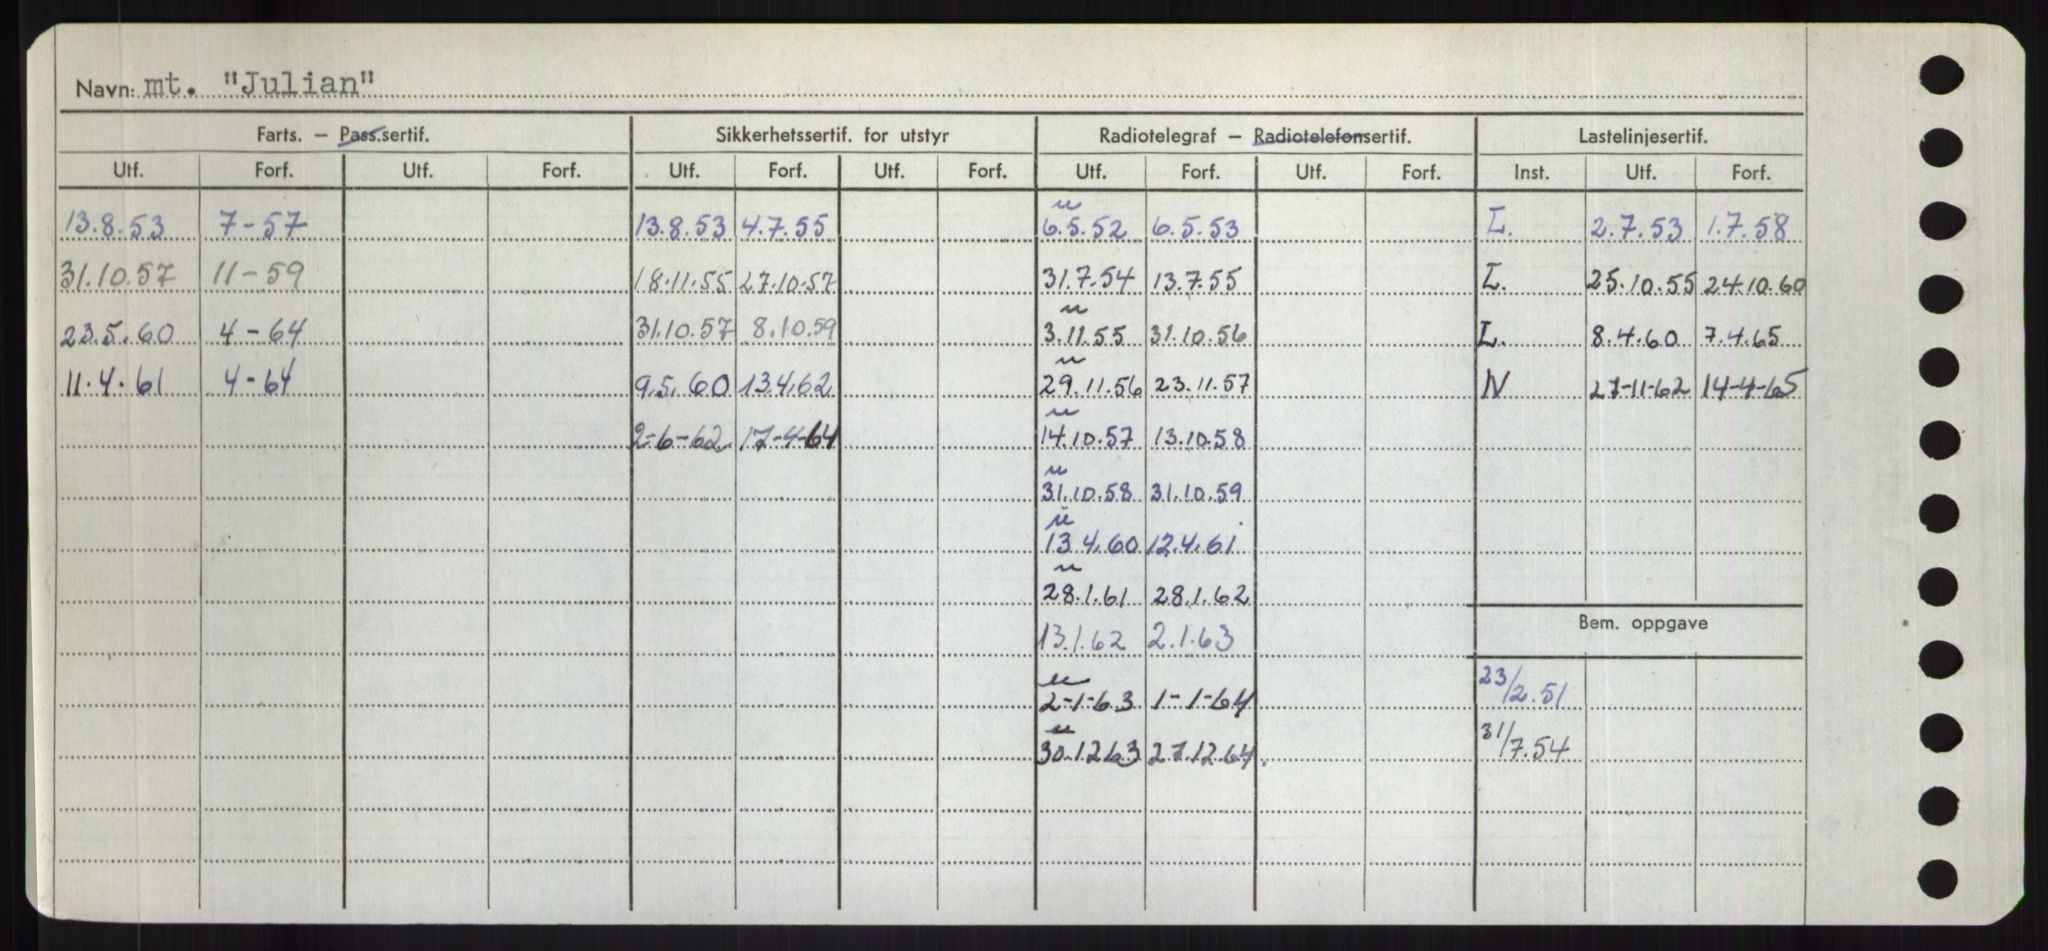 Navn: mt. "Julian"
Farts. — Pass.sertif. Sikkerhetssertif. for utstyr Radiotelegraf — Radiotelefonsertif. Lastelinjesertif.
Utf. Forf. Utf. Forf. Utf. Forf. Utf. Forf. Utf. Forf. Utf. Forf. Inst. Utf. Forf.
13.8.53 7-57 13.8.53 4.7.55 u 6.5.52 6.5.53 L. 2.7.53 1.7.58
31.10.57 11-59 18.11.55 27.10.57 31.7.54 13.7.55 L. 25.10.55 24.10.60
23.5.60 4-64 31.10.57 8.10.59 u 3.11.55 31.10.56 L. 8.4.60 7.4.65
11.4.61 4-64 9.5.60 13.4.62 u 29.11.56 23.11.57 N 27-11-62 14-4-65
2-6-62 17-4-64 u 14.10.57 13.10.58
u 31.10.58 31.10.59
u 13.4.60 12.4.61
u 28.1.61 28.1.62
Bem. oppgave
13.1.62 2.1.63
u 2-1-63 1-1-64 23/2.51
u 30.12.63 27.12.64. 31/7.54